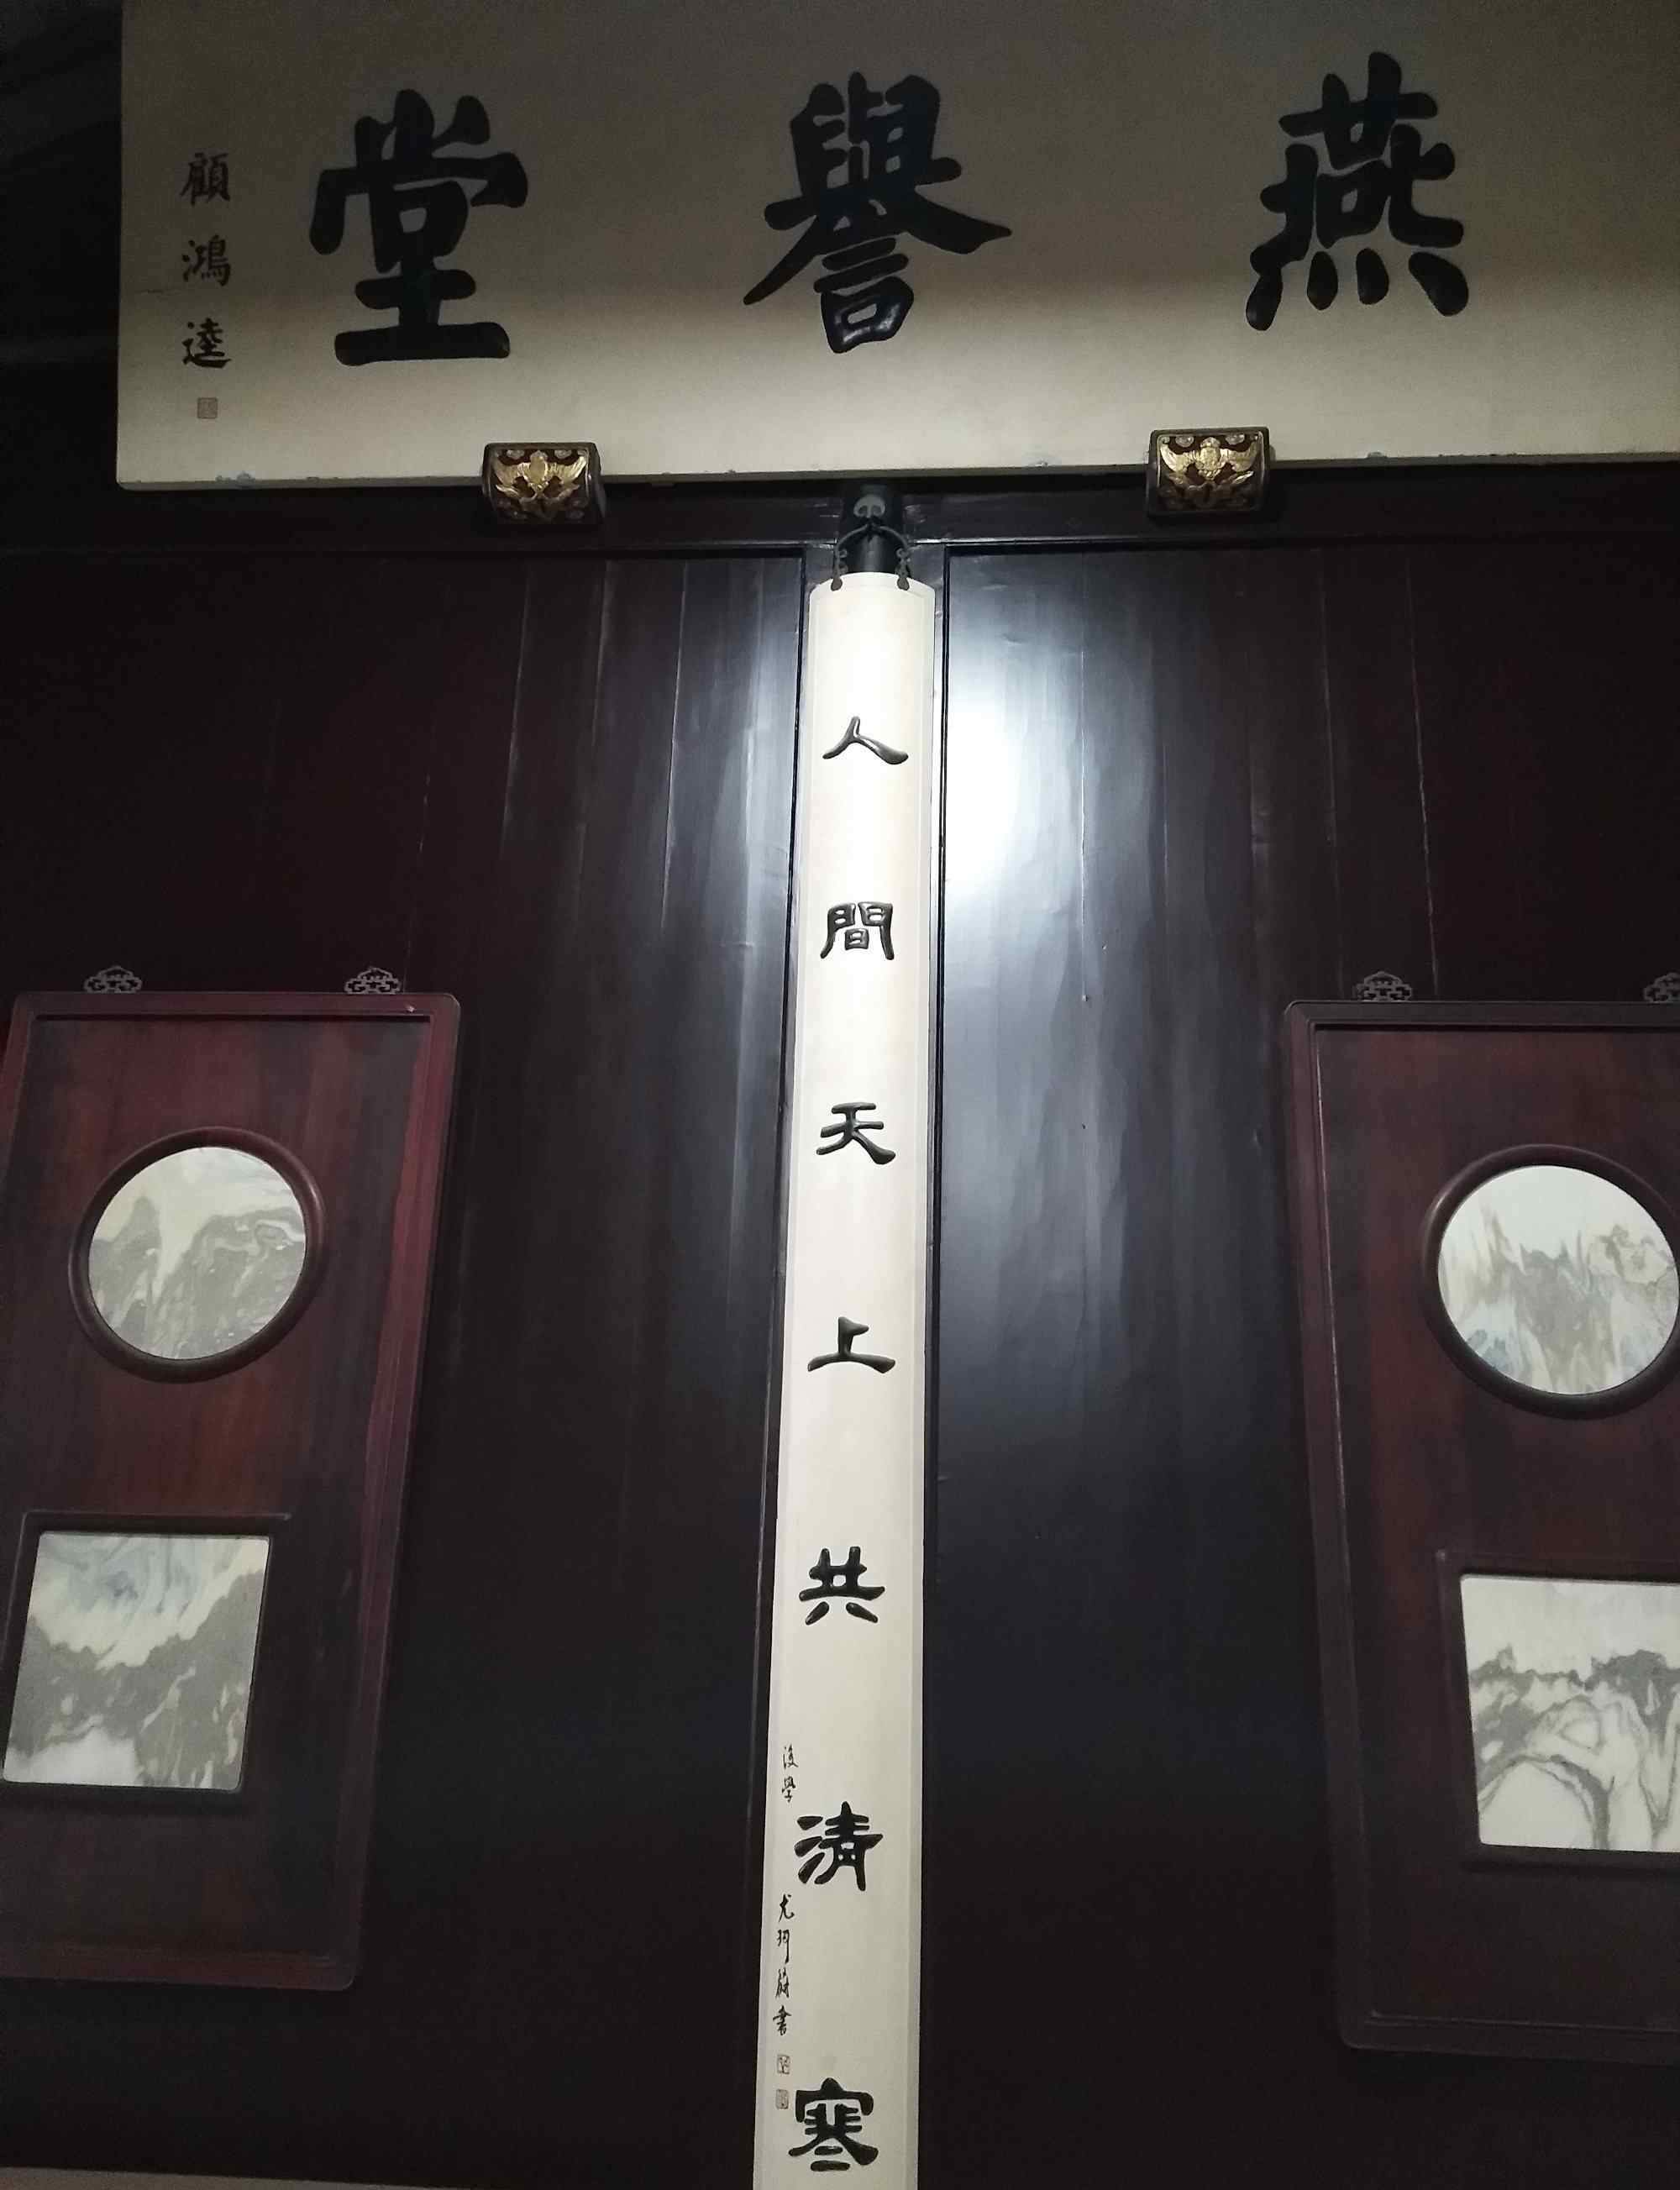 燕譽堂
顧鴻逵
人間天上共清寒
後學
尤玘尉書